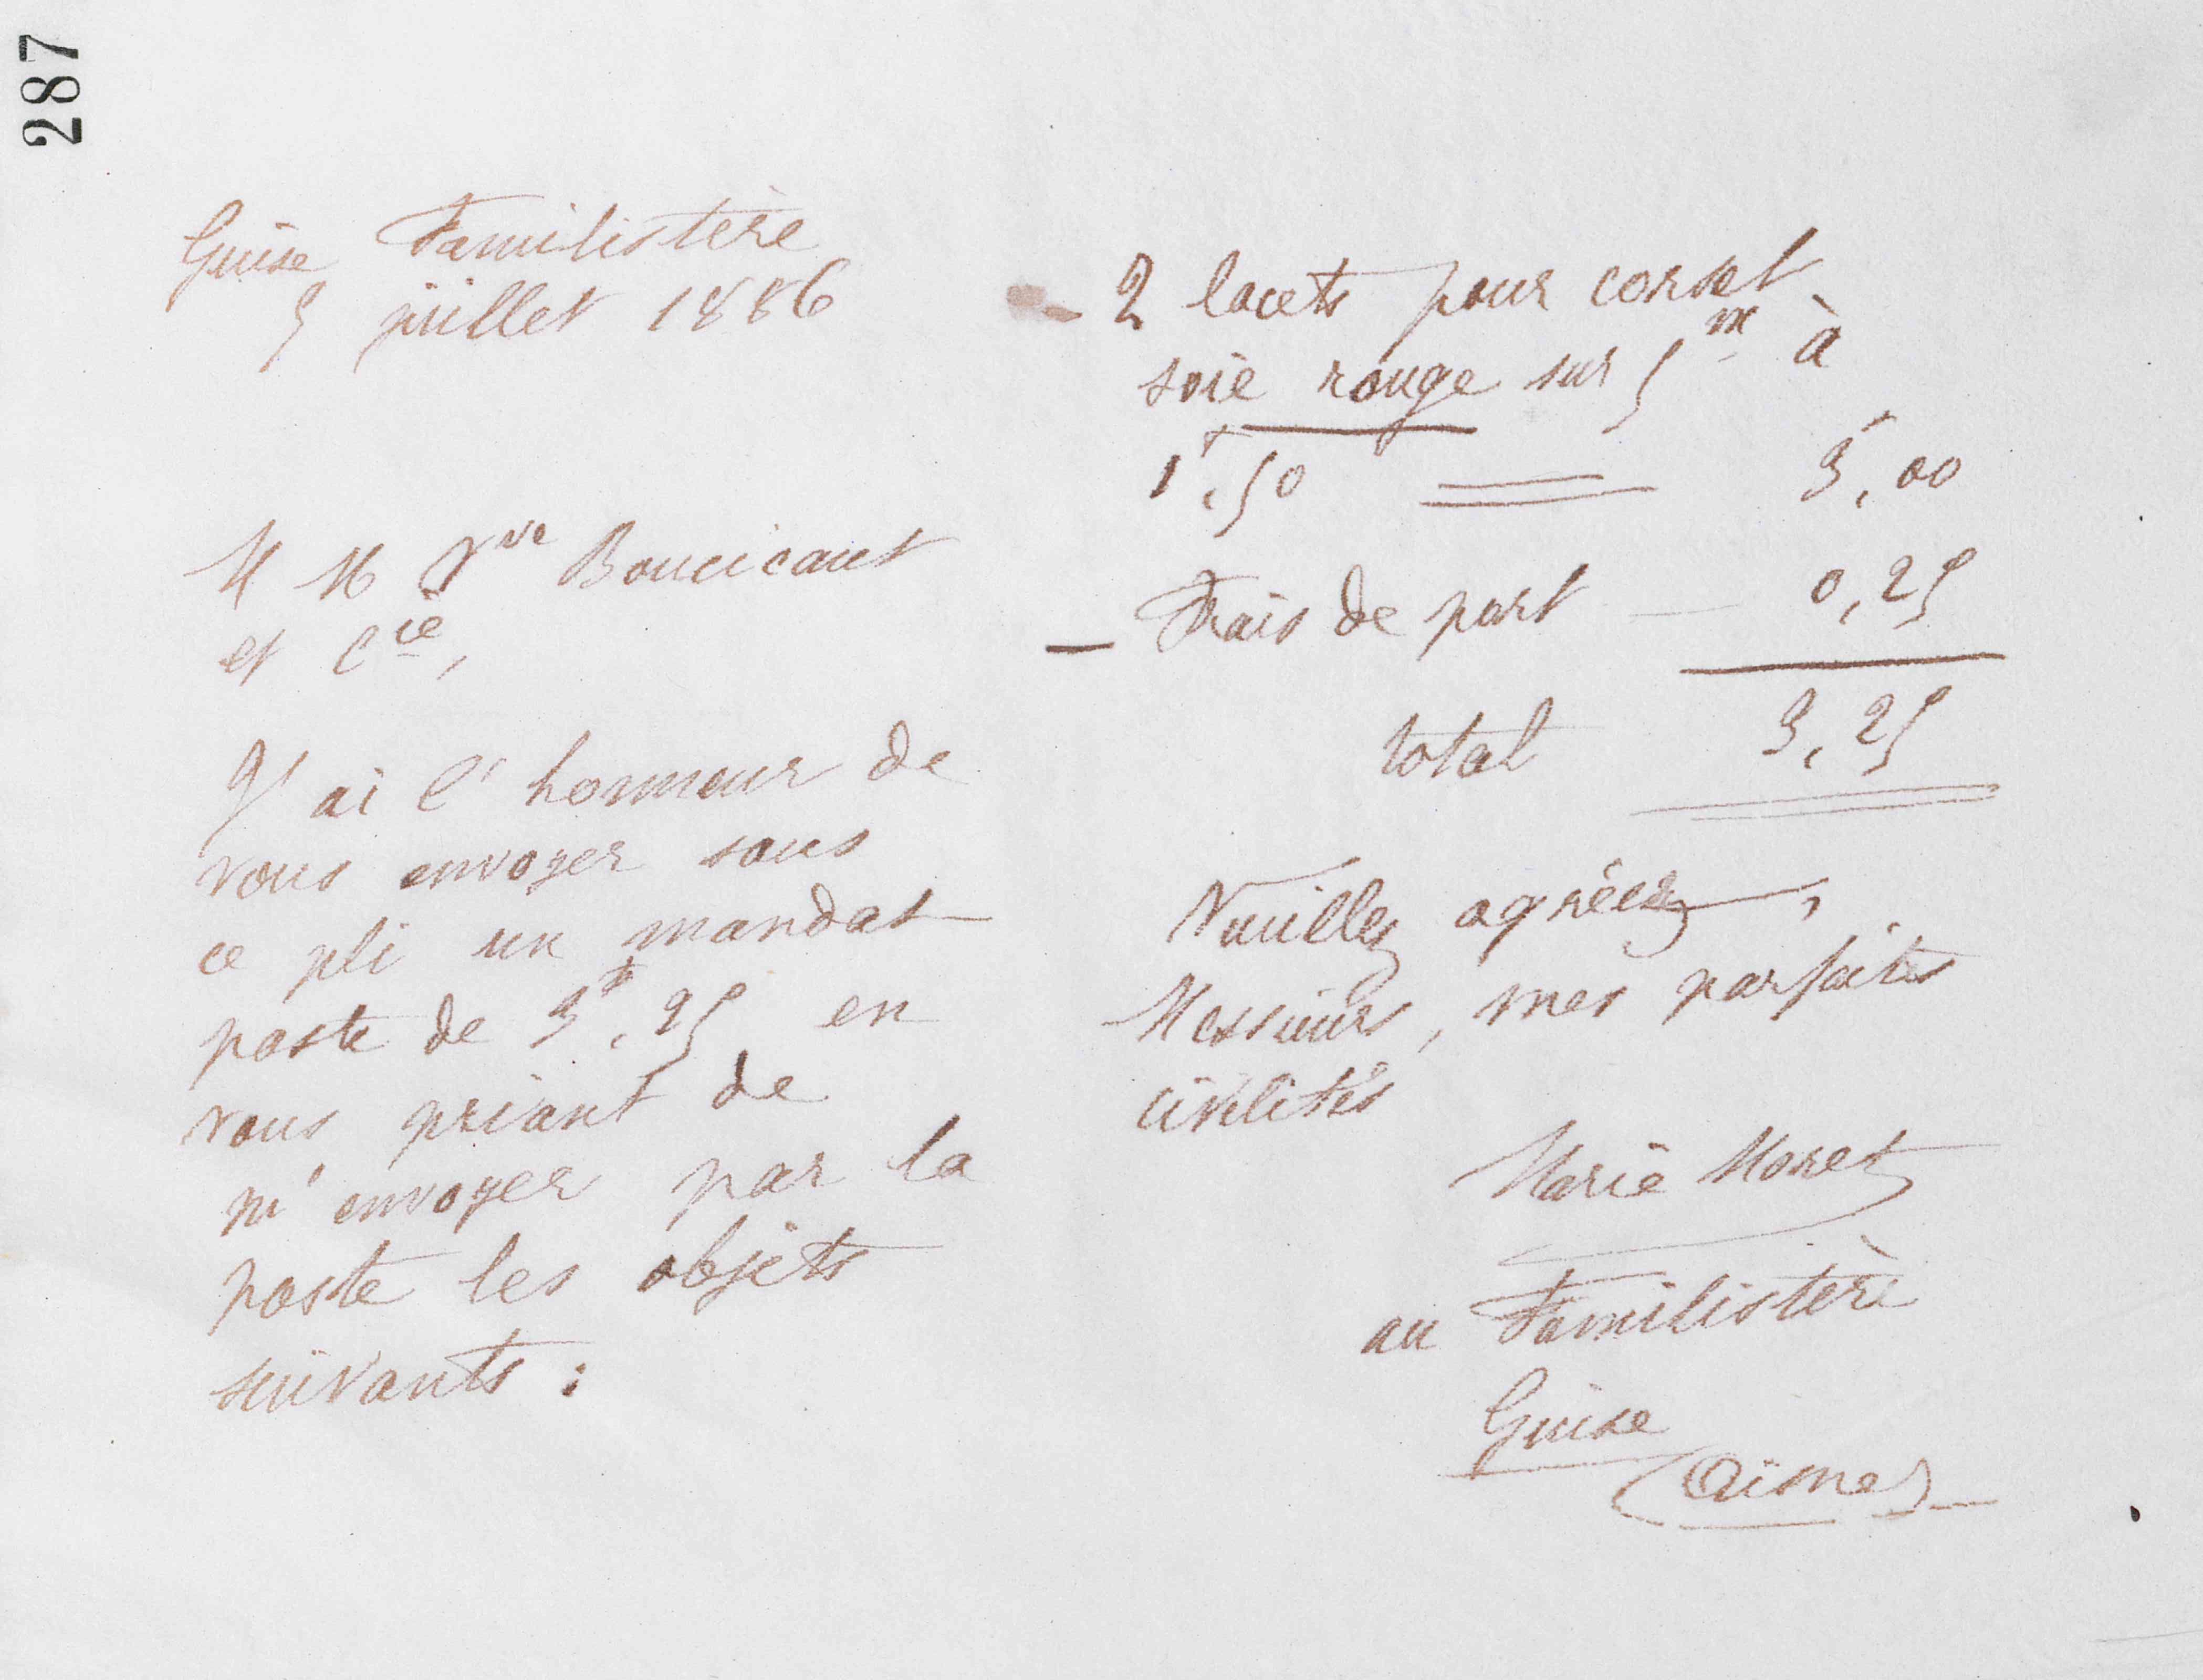 287
Guise Familistère
5 juillet 1886
M M Vve Boucicaut
et Cie,
J'ai l'honneur de
vous envoyer sous
ce pli un mandat
poste de 3f,25 en
vous priant de
m'envoyer par la
poste les objets
suivants :
- 2 lacets pour corset
soie rouge sur 5m à
1f,50 = 3f,00
- Frais de port — 0,25
total 3,25
Veuillez agréer,
Messieurs, mes parfaites
civilités
Marie Moret
au Familistère
Guise
(Aisne)